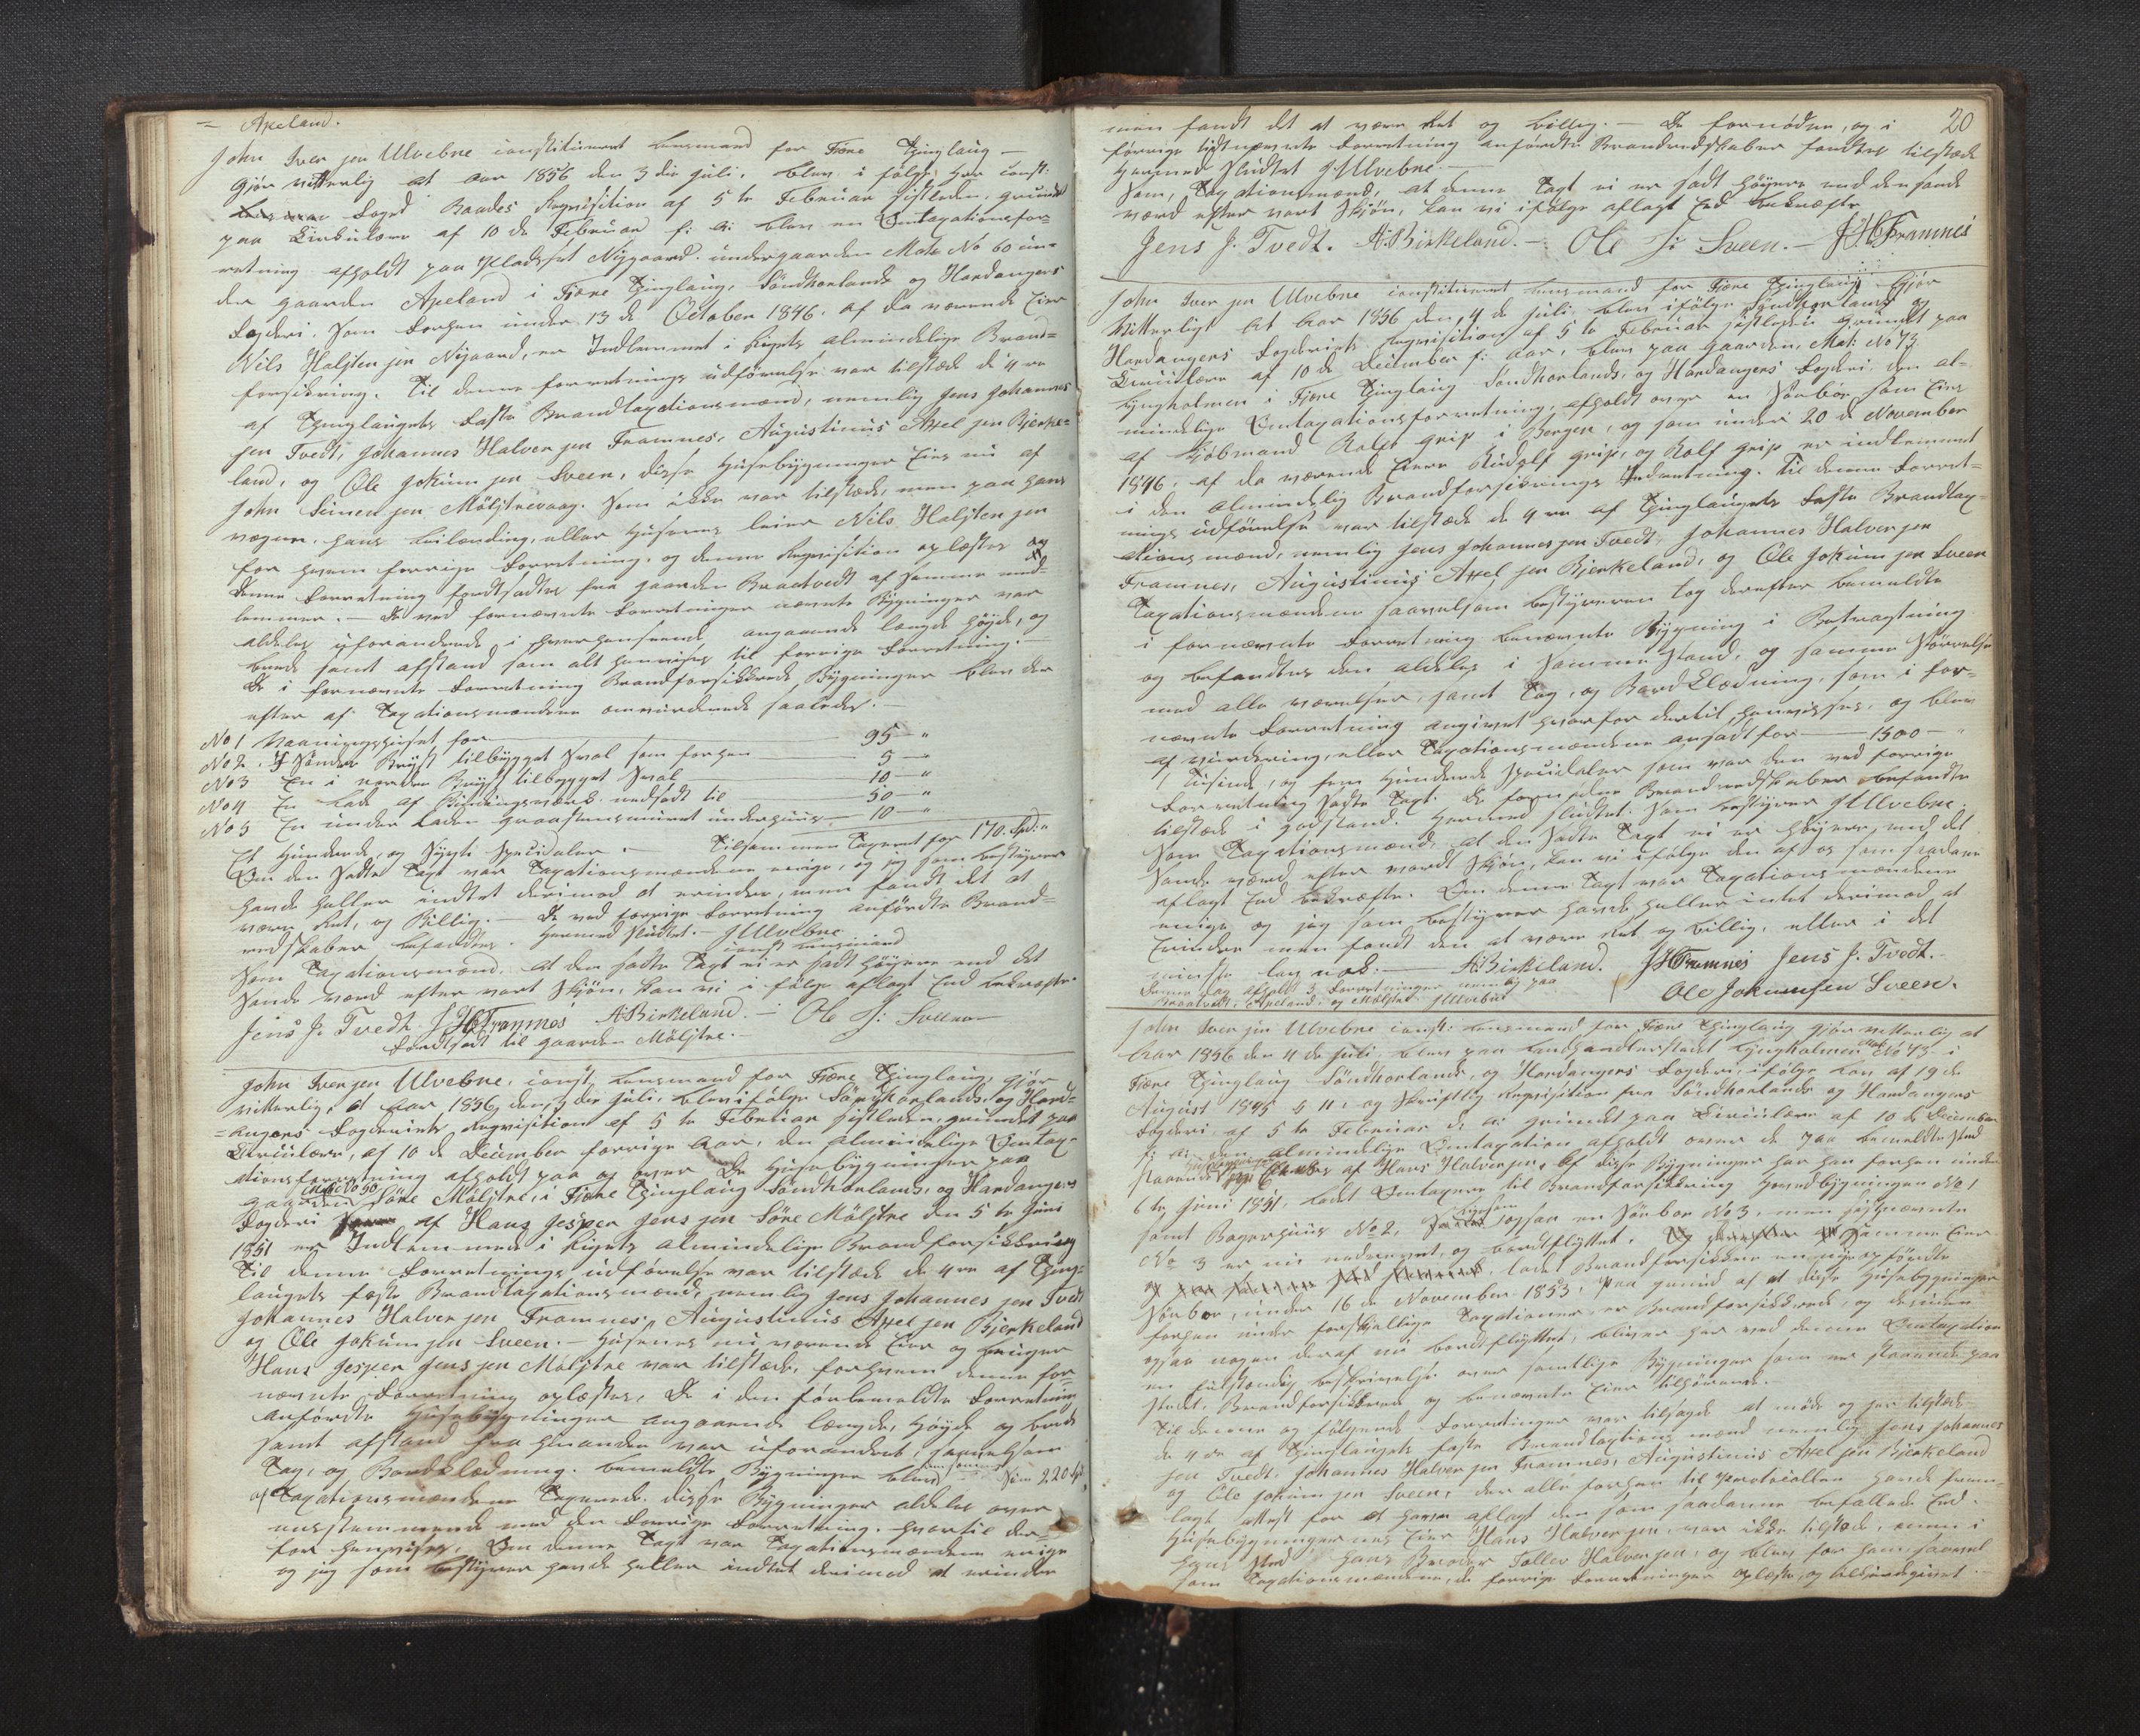 = Apeland.
John Iver sen Ulvebne constitueret Lensmand for Fjære Thinglaug —
Gjør vitterlig at Aar 1856 den 3die Juli, blev i følge Hr const:
Foged Baades Requisition af 5te Februar sistleden, grundet
paa Cirkulære af 10de Februar f: A: blev en Omtaxationsfor-
retning afholdt paa Pladsset Nygaard under gaarden Matr No 60 un-
der gaarden Apeland i Fjære Thinglaug, Söndhorlands og Hardangers
Fogderi. Som forhen under 13de October 1846. af da værende Eier
Nils Halsten sen Nygaard, er Indlemmet i Rigets almindelige Brand=
forsikring. Til denne forretnings udförelse var tilstæde de 4re
af Thinglaugets faste Brandtaxationsmænd, nemlig Jens Johannes
sen Tvedt, Johannes Halver sen Framnes, Augustinus Axel sen Bjerke=
land, og Ole Jokum sen Sveen, disse Husebygninger Eies nu af
John Simen sen Mölstrevaag. Som ikke var tilstæde, men paa hans
vegne, hans Leilænding, eller Husenes leier Nils Halsten sen
for hvem forrige Forretning, og denne Requisition oplæstes og
denne Forretning fortsattes fra gaarden Braatvedt af samme med=
lemmer. — De ved fornævnte Forretninger nævnte Bygninger var
aldeles uforandrede i hverhenseende angaaende længde høyde, og
brede samt afstand som alt henvises til forrige Forretning. —
De i fornævnte Forretning Brandforsikkrede Bygninger blev der
efter af Taxationsmændene omvurderede saaledes. —
No 1 Vaaningshuset for — 95 — "
No 2. I Søndre Bryst tilbygget Sval som forhen — 5 — "
No 3 En i nordre Bryst tilbygget Sval — 10 — "
No 4 En Lade af Bindingsværk nedsadt til — 50 — "
No 5 En under Laden graastensmuret underhuus — 10 — "
Et Hundrede, og Sytti Specidaler. — Tilsammen Taxeret for 170. Spd: "
Om den Satte Taxt var Taxationsmændene enige, og jeg som bestyrer
havde heller intet derimod at erindre, men fandt det at
være Ret, og Billig. — De ved forrige Forretning anførdte Brand=
redskaber befandtes. Hermed Sluttet. — JIUlvebne
const Lensmand
Som Taxationsmænd. At den satte Taxt ei er sadt höyere end det
Sande værd efter vort Skjön, kan vi i følge aflagt Eed bekræfte.
Jens J. Tvedt. JHFramnes A:Birkeland. — Ole J: Sveen
Fortsadt til gaarden Mölstre. —
John Iver sen Ulvebne, const. Lensmand for Fjære Thinglaug, Gjör
vitterlig, at Aar 1856, den 3die Juli, blev ifølge Söndhorlands, og Hard=
=angers Fogderiets Requisition af 5te Februar sistleden, grundet paa
Circulære, af 10de December forrige Aar, den almindelige Omtax-
ationsforretning afholdt paa og over De Husebygninger paa
Matr No 50
gaarden Söre Mölstre, i Fjære Thinglaug Söndhorlands, og Hardangers
Fogderi af Hans Jesper Jens sen Söre Mölstre den 5te Juni
1851 er Indlemmede i Rigets almindelige Brandforsikkring
Til denne Forretnings udförelse var tilstæde de 4re af Thing-
laugets faste Brandtaxationsmænd, nemlig Jens Johannes sen Tvedt,
Johannes Halver sen Framnes, Augustinus Axel sen Bjerkeland
og Ole Jokum sen Sveen. — Husenes nu værende Eier og bruger
Hans Jesper Jens sen Mölstre var tilstæde, forhvem denne for=
nævnte Forretning oplæstes, De i den forbemeldte Forretning
anførdte Husebygninger angaaende længde, Høyde og brede
samt afstand fra hinanden var uforandret, saavelsom
Tag, og Bordklædning. bemeldte Bygninger blev tilsammen Sum 220 Spd
af Taxationsmændene Taxerede. disse Bygninger aldeles over
ensstemmende med den forrige Forretning. hvortil der=
for henvises. Om denne Taxt var Taxationsmændene enige
og jeg som bestyrer havde heller indtet derimod at erindre
20
men fandt det at være Ret og billig. — De fornødne, og i
forrige sidtnævnte Forretning anförte Brandredskaber fandtes tilstæde
Hermed Sluttet JIUlvebne. —
Som, Taxationsmænd, at denne Taxt ei er sadt höyere end den sande
værd efter vort skjön, kan vi ifølge aflagt Eed bekræfte
Jens J. Tvedt. A:Birkeland. — Ole J: Sveen. — JHFramnes
John Iver sen Ulvebne constitueret Lensmand for Fjære Thinglaug Gjör
Vitterligt At Aar 1856 den 4de Juli blev ifölge Söndhorlands og
Hardangers Fogderiets Requisition af 5te Februar sistleden Grundet paa
Circulære af 10de December f: Aar, blev paa Gaarden, Mat: No 73
Lyngholmen i Fjære Thinglaug Söndhorlands, og Hardangers Fogderi, den al-
mindelige Omtaxationsforretning, afholdt over en Söebod som Eies
af Kjöbmand Rolf Grip i Bergen, og som under 20de November
1846. af da værende Eiere Rudolf Grip, og Rolf Grip er indlemmet
i den almindelig Brandforsikrings Indretning. Til denne Forret=
nings udförelse var tilstæde de 4re af Thinglaugets Faste Brandtax=
ationsmænd, nemlig Jens Johannes sen Tvedt, Johannes Halver sen
Framnes, Augustinus Axel sen Bjerkeland, og Ole Jokum sen Sveen
Taxationsmændene saavelsom bestyreren tog derefter bemeldte
i fornævnte Forretning benævnte Bygning i Betragtning
og befandtes den aldeles i Samme Stand, og samme Störrelse
med alle værelser, samt Tag, og Bord Klædning, som i for=
nævnte Forretning angivet hvorfor dertil henvises, og blev
af vurdering, eller Taxationsmændene ansadt for — 1500 — "
1 Tusinde, og fem Hundrede Specidaler som var den ved forrige
Forretning satte Taxt. De fornødne Brandredskaber befandtes
tilstæde i godstand. Hermed sluttet. Som bestyrer JIUlvebne.
Som Taxationsmænd, at den Satte Taxt ei er höyere, end det
Sande værd efter vordt Skjön, kan vi ifölge den af os som saadane
aflagt Eed bekræfte. Om denne Taxt var Taxationsmændene
enige, og jeg som bestyrer havde heller intet derimod at
Erindre men fandt den at være Ret og billig, eller i det
mindste lav nok: — A:Birkeland. JHFramnes Jens J. Tvedt.
Denne Dag afholdt 3 Forretninger nemlig paa
Braatvedt, Apeland, og Mølstre JIUlvebne Ole Jokumsen Sveen.
John Iver sen Ulvebne const: Lensmand for Fjære Thinglaug gjör vitterlig at
Aar 1856 den 4de Juli, blev paa Landhandlerstedet Lyngholmen Mat No 73 i
Fjære Thinglaug Söndhorlands, og Hardangers Fogderi, ifølge Lov af 19de
August 1845 § 11, og Skriftlig Requisition fra Söndhorlands og Hardangers
Fogderi af 5te Februar d: A: grundet paa Circulære af 10de December
f: A: den almindelige Omtaxation afholdt over de paa bemeldte Sted
staaende Husebygninger af Hans Halver sen, Af disse Bygninger har han forhen under
6te Juni 1851, ladet Omtaxere til Brandforsikkring Hovedbygningen No 1
samt Bagerhuus No 2, ogsaa en Söebod No 3, men sistnævnte
No 3 er nu nedrevet, og bortflyttet. Samme Eier
ladet Brandforsikkre en nye opförte
Söebod, under 16de November 1853, Paa grund af at disse Husebygninger
forhen under forskjellige Taxationer er Brandforsikkrede, og desuden
ogsaa nogen deraf nu bortflyttet, bliver her ved denne Omtaxation
en fulstændig beskrivelse over samtlige Bygninger som er staaende paa
Stedet, Brandforsikkrede og benævnte Eier tilhörende.
Til denne og følgende Forretninger var tilsagde at möde og her tilstæde
de 4re af Thinglaugets faste Brandtaxtionsmænd nemlig Jens Johannes
sen Tvedt, Johannes Halver sen Framnes, Augustinus Axel sen Bjerkeland
og Ole Jokum sen Sveen, der alle forhen til Protocollen havde frem
lagt attest for at have aflagt den som saadanne befallede Eed.
Husebygningernes Eier Hans Halver sen, var ikke tilstæde, men i
hans Sted hans Broder Tollev Halver sen, og blev for ham saavel
som Taxationsmændene, de forrige Forretninger oplæste, og tilkjendegivet